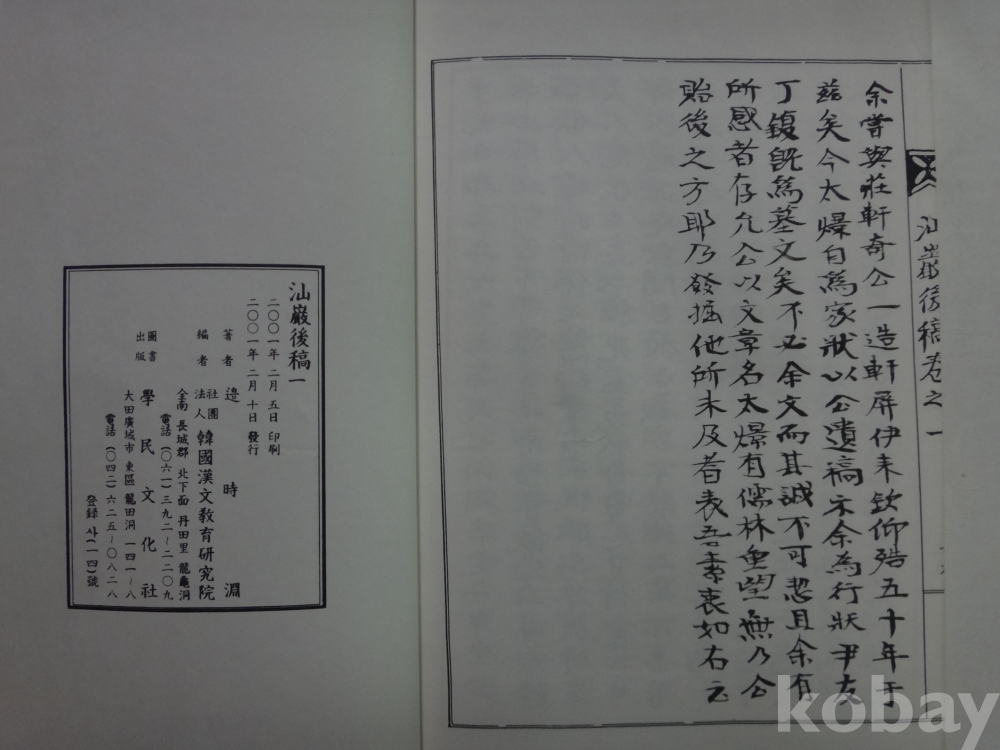 余嘗與莊軒奇公一造軒屏伊來欽仰殆五十年于
茲矣今太爆自爲家狀以公遺稿示余為行狀尹友
丁鍑旣爲墓文矣不必余文而其誠不可恝且余有
所感者存允公以文章名太爆有儒林重望無乃公
貽後之方耶乃發掘他所未及者表吾素衷如右云
汕巖後稿卷之一
汕巖後稿 一
二〇〇一年 二月 五日 印刷
二〇〇一年 二月 十日 發行
著者 邉時淵
編者 社團法人 韓國漢文敎育研究院
全南 長城郡 北下面 丹田里 龍龜洞
電話 (〇六一)三九二~二二〇九
圖書出版 學民文化社
大田廣域市 東區 龍田洞 一四一~八
電話 (〇四二)六二五~〇八二八
登錄 사(一四)號
kobay